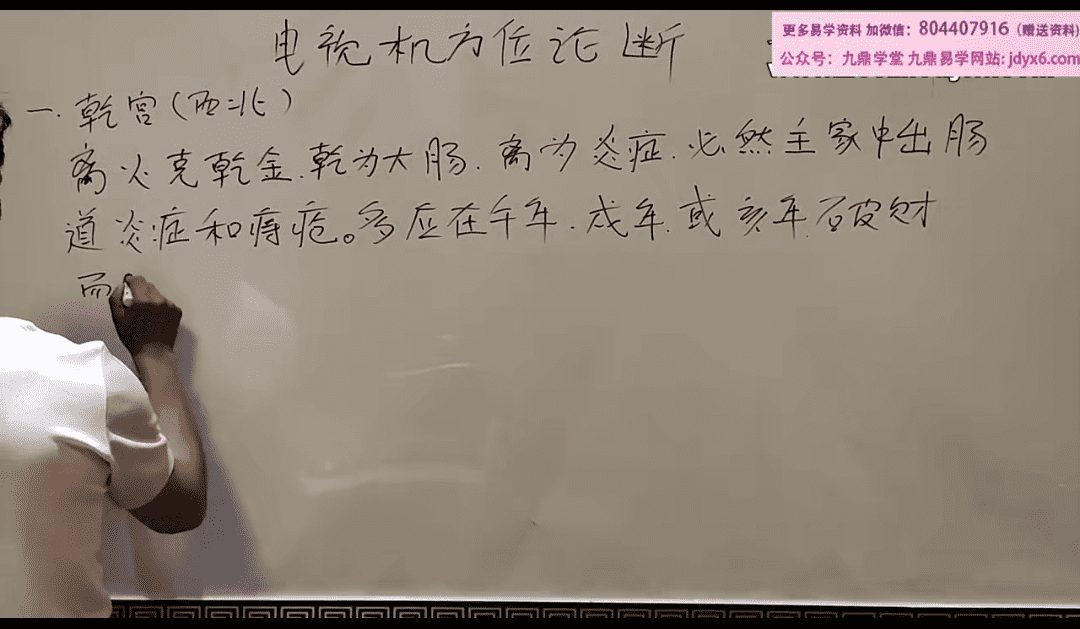 电视机方位论断
更多易学资料 加微信：804407916（赠送资料）
公众号：九鼎学堂 九鼎易学网站: jdyx6.com
一. 乾宫(西北)
离火克乾金.乾为大肠.离为炎症.必然主家中出肠
道炎症和痔疮。多应在午年.戌年.或亥年.破财
而